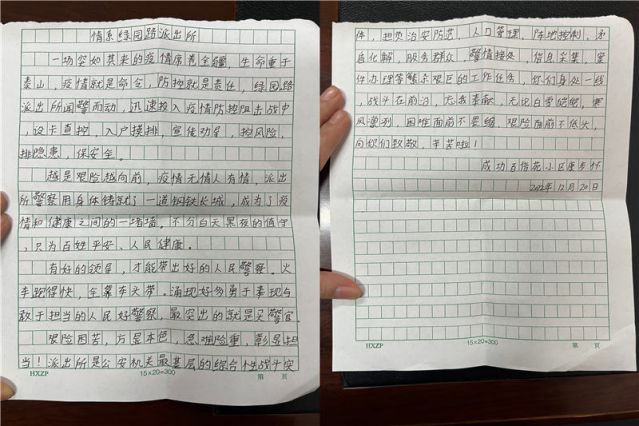 情系绿园路派出所
一场突如其来的疫情席卷全疆，生命重于
泰山，疫情就是命令，防控就是责任，绿园路
派出所闻警而动，迅速投入疫情防控阻击战中
，设卡查控，入户摸排，宣传劝导，控风险，
排隐患，保安全。
越是艰险越向前，疫情无情人有情，派出
所警察用身体铸就了一道钢铁长城，成为了疫
情和健康之间的一堵墙。不分白天黑夜的值守
，只为百姓平安、人民健康。
有好的领导，才能带出好的人民警察。火
车跑得快，全靠车头带。涌现好多勇于表现与
敢于担当的人民好警察，最突出的就是 警官
艰险困苦，方显本色，急难险重，彰显担
当！派出所是公安机关最基层的综合性战斗实
HXZP
15×20=300
第 页
体，担负治安防范，人口管理，阵地控制，
化解，服务群众，警情接处，信息采集，案
件办理等繁杂艰巨的工作任务，你们身处一线
，战斗在前沿，无私奉献，无论白雪皑皑，寒
风凛冽，困难面前不畏缩，艰险面前不低头，
向你们致敬，辛苦啦！
成功百信花 小区
2022年12月20日
HXZP
15×20=300
第 页